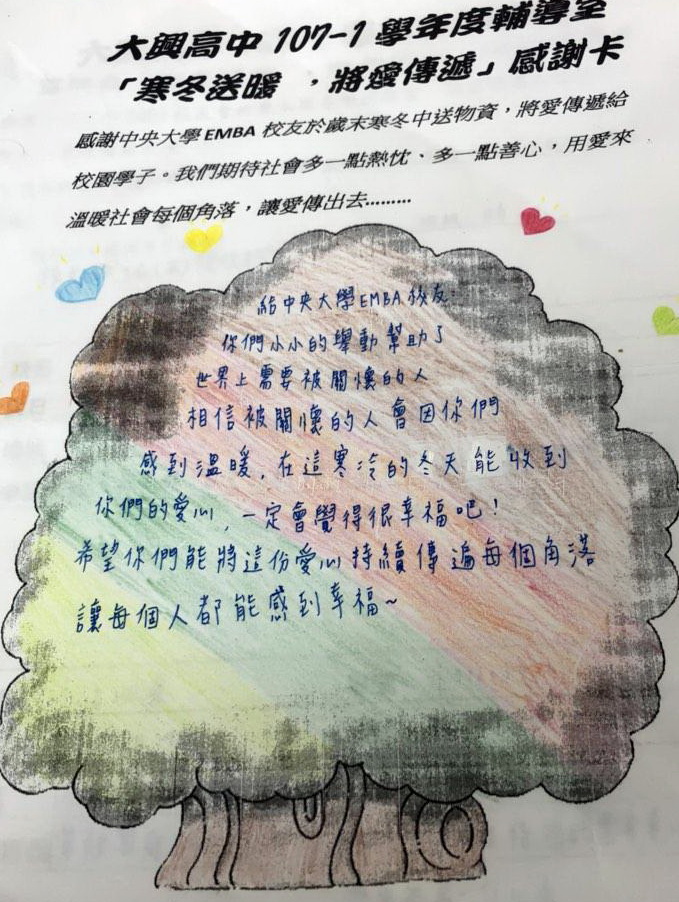 大興高中 107-1 學年度輔導室
「寒冬送暖 ，將愛傳遞」感謝卡
感謝中央大學 EMBA 校友於歲末寒冬中送物資，將愛傳遞給
校園學子。我們期待社會多一點熱忱、多一點善心，用愛來
溫暖社會每個角落，讓愛傳出去………
給中央大學EMBA校友:
你們小小的舉動幫助了
世界上需要被關懷的人
相信被關懷的人會因你們
感到溫暖，在這寒冷的冬天能收到
你們的愛心，一定會覺得很幸福吧！
希望你們能將這份愛心持續傳遍每個角落
讓每個人都能感到幸福~